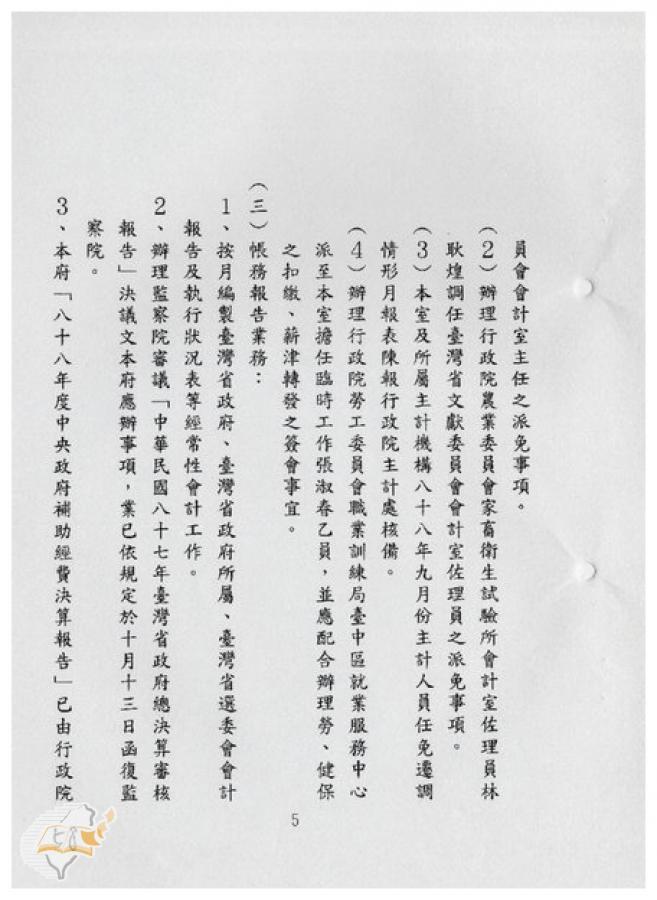 員會會計室主任之派免事項。
（2）辦理行政院農業委員會家畜衛生試驗所會計室佐理員林
耿煌調任臺灣省文獻委員會會計室佐理員之派免事項。
（3）本室及所屬主計機構八十八年九月份主計人員任免遷調
情形月報表陳報行政院主計處核備。
（4）辦理行政院勞工委員會職業訓練局臺中區就業服務中心
派至本室擔任臨時工作張淑春乙員，並應配合辦理勞、健保
之扣繳、薪津轉發之簽會事宜。
（三）帳務報告業務：
1、按月編製臺灣省政府、臺灣省政府所屬、臺灣省選委會會計
報告及執行狀況表等經常性會計工作。
2、辦理監察院審議「中華民國八十七年臺灣省政府總決算審核
報告」決議文本府應辦事項，業已依規定於十月十三日函復監
察院。
3、本府「八十八年度中央政府補助經費決算報告」已由行政院
5
58